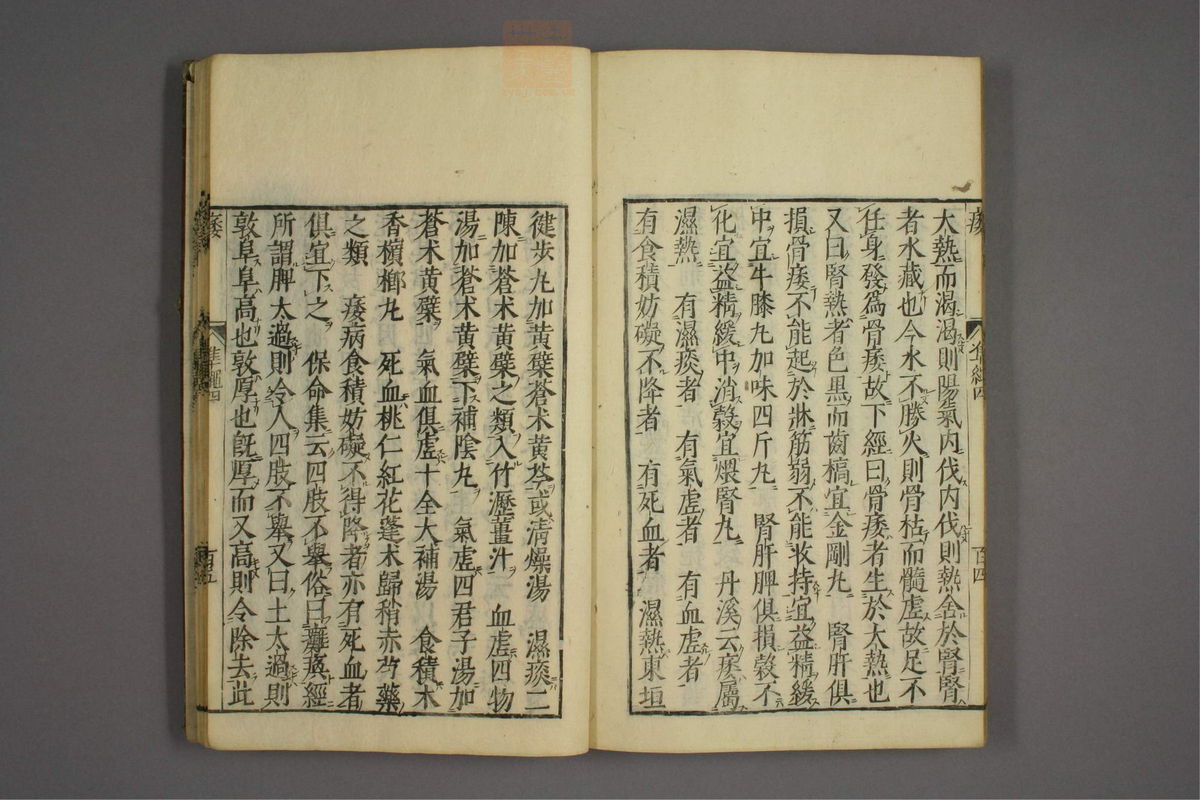 大熱而渴渴則陽氣内伐内伐則熱舍於腎腎
者水藏也今水不勝火則骨枯而髓虚故足不
任身發爲骨痿故下經曰骨痿者生於大熱也
又曰腎熱者色黒而齒槁宜金剛丸　腎肝俱
損骨痿不能起於牀筋弱不能收持宜益精緩
中宜牛膝丸加味四斤丸　腎肝脾俱損穀不
化宜益精緩中消穀宜煨腎丸　丹溪云痿屬
濕熱　有濕痰者　有氣虚者　有血虚者
有食積妨礙不降者　有死血者　濕熱東垣
痿
百四
健步丸加黄蘗蒼术黄芩或清燥湯　濕痰二
陳加蒼术黄蘗之類入竹瀝薑汁　血虚四物
湯加蒼术黄蘗下補陰丸　氣虚四君子湯加
蒼术黄蘗　氣血俱虚十全大補湯　食積木
香檳榔丸　死血桃仁紅花蓬术歸梢赤芍藥
之類　痿病食積妨礙不得降者亦有死血者
俱宜下之　保命集云四肢不舉俗曰癱瘓經
所謂脾太過則令人四肢不舉又曰土太過則
敦阜阜高也敦厚也旣厚而又高則令除去此
痿
百五